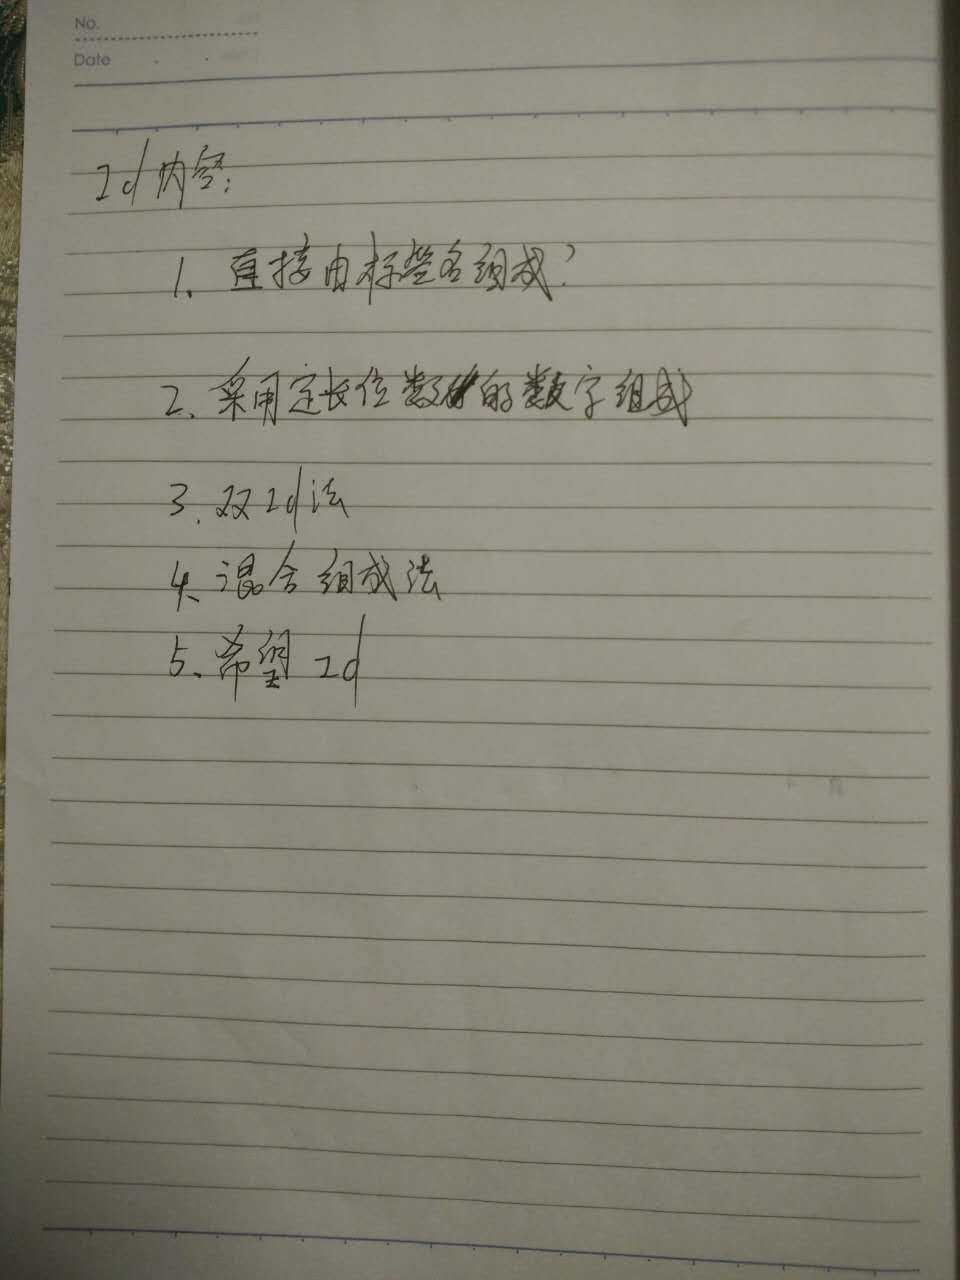 No.
Date
Id内容:
1、直接由标签名组成?
2、采用定长位数的数字组成
3、双Id法
4、混合组成法
5、希望Id